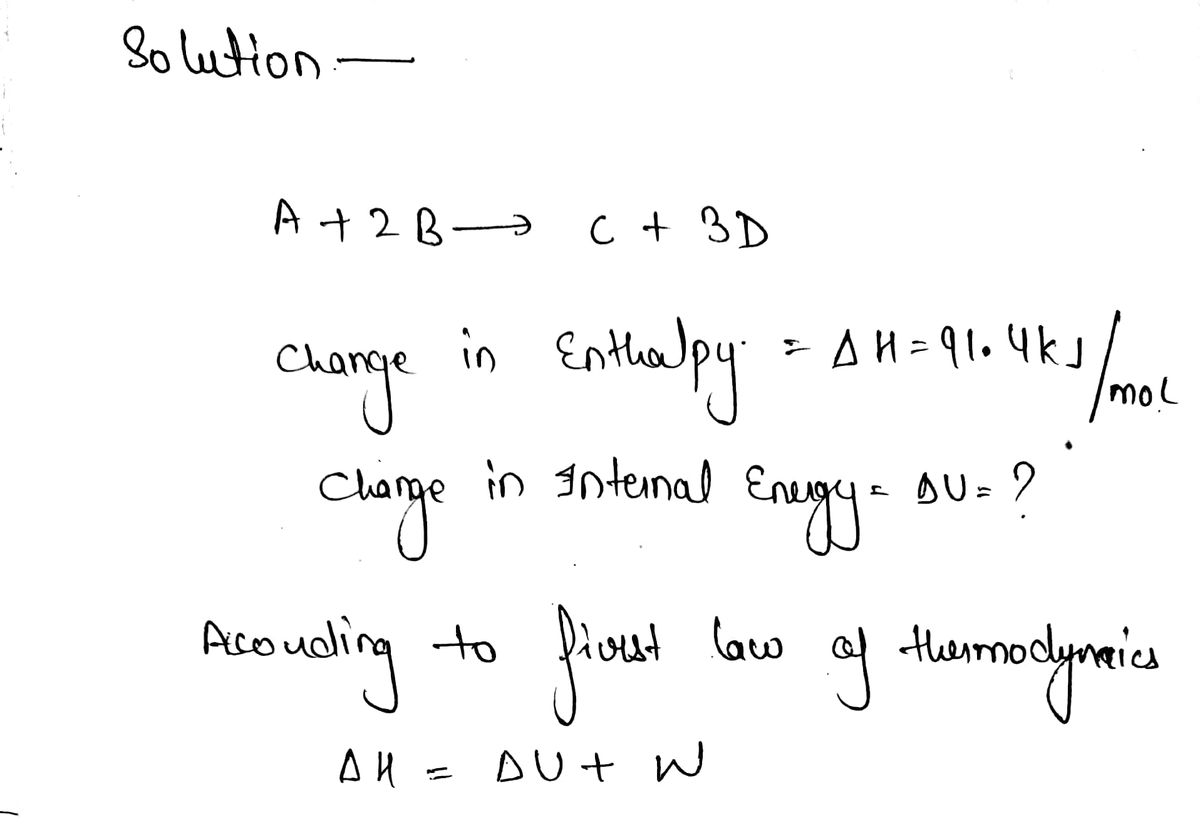 Solution —
A + 2B → C + 3D
Change in Enthalpy = ΔH = 91.4kJ/mol
Change in Internal Energy = ΔU = ?
According to first law of thermodynamics
ΔH = ΔU + W